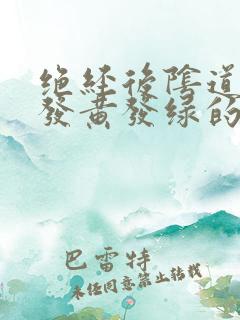 绝经後陰道
發黃發绿的
巴雷特
未经同意禁止转载